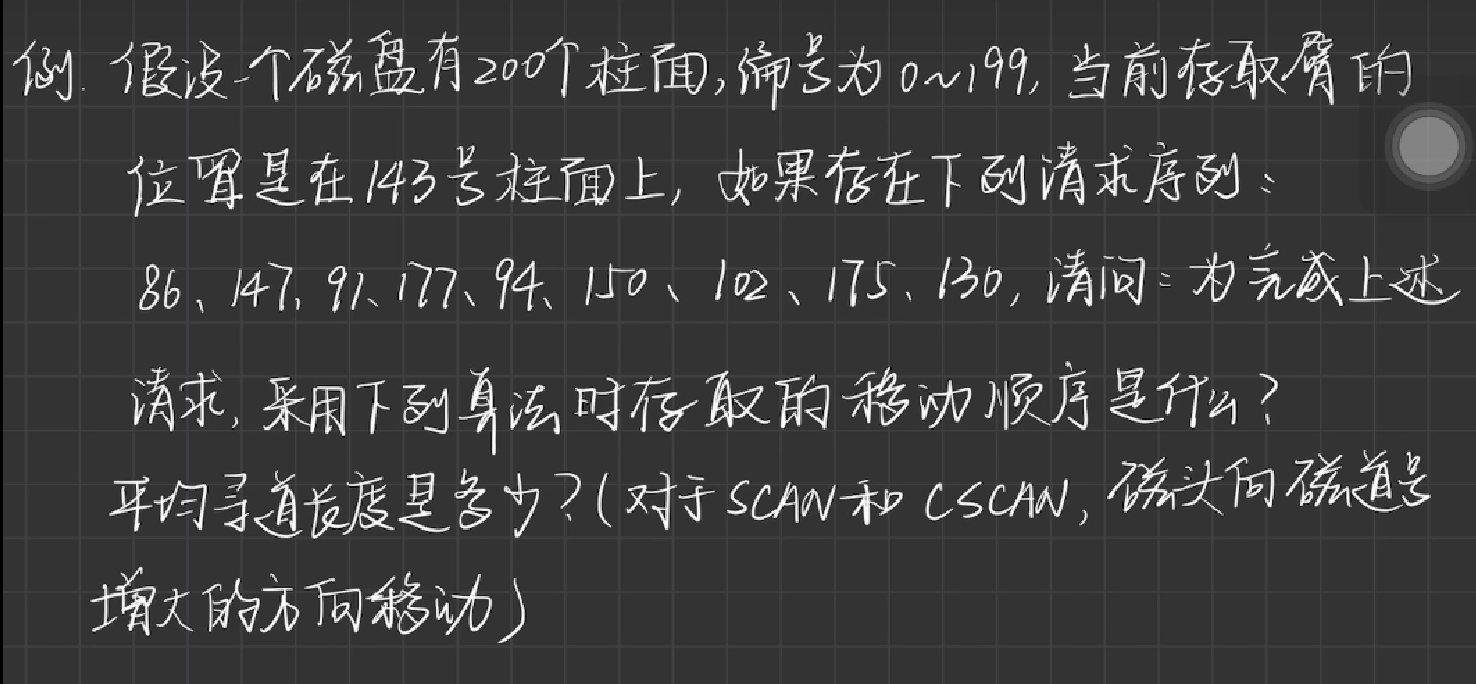 例. 假设一个磁盘有200个柱面,编号为0~199,当前存取臂的
位置是在143号柱面上,如果存在下列请求序列:
86、147、91、177、94、150、102、175、130,请问:为完成上述
请求,采用下列算法时存取的移动顺序是什么?
平均寻道长度是多少?(对于SCAN和CSCAN,磁头向磁道号
增大的方向移动)